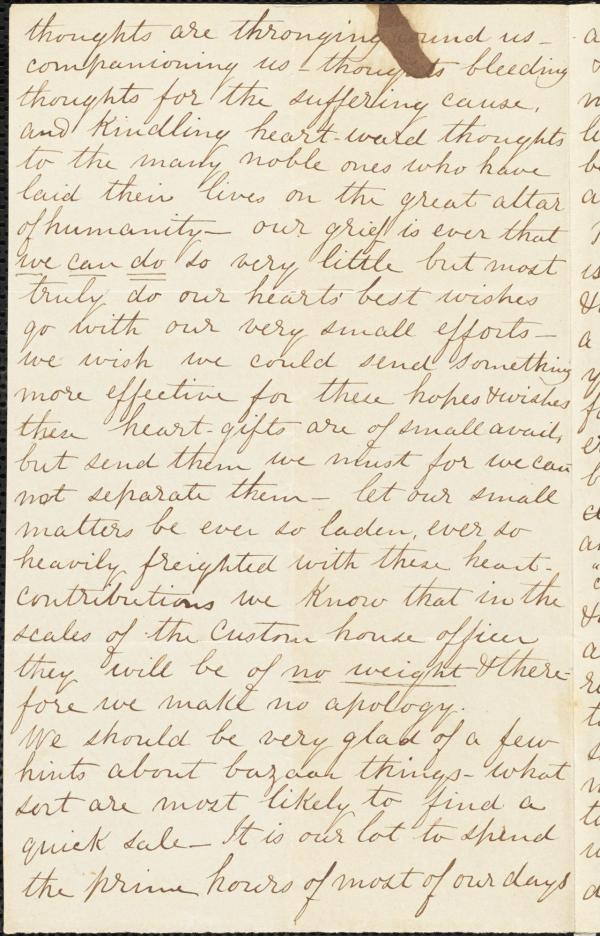 thoughts are thronging round us –
companioning us – thoughts bleeding
thoughts for the suffering cause,
and kindling heart-ward thoughts
to the many noble ones who have
laid their lives on the great altar
of humanity – our grief is ever that
we can do so very little but most
truly do our hearts' best wishes
go with our very small efforts –
we wish we could send something
more effective for these hopes & wishes
these heart-gifts are of small avail,
but send them we must for we can
not separate them – let our small
matters be ever so laden, ever so
heavily freighted with these heart-
contributions we know that in the
scales of the custom house officer
they will be of no weight & there-
fore we make no apology.
We should be very glad of a few
hints about bazaar things – what
sort are most likely to find a
quick sale – It is our lot to spend
the prime hours of most of our days